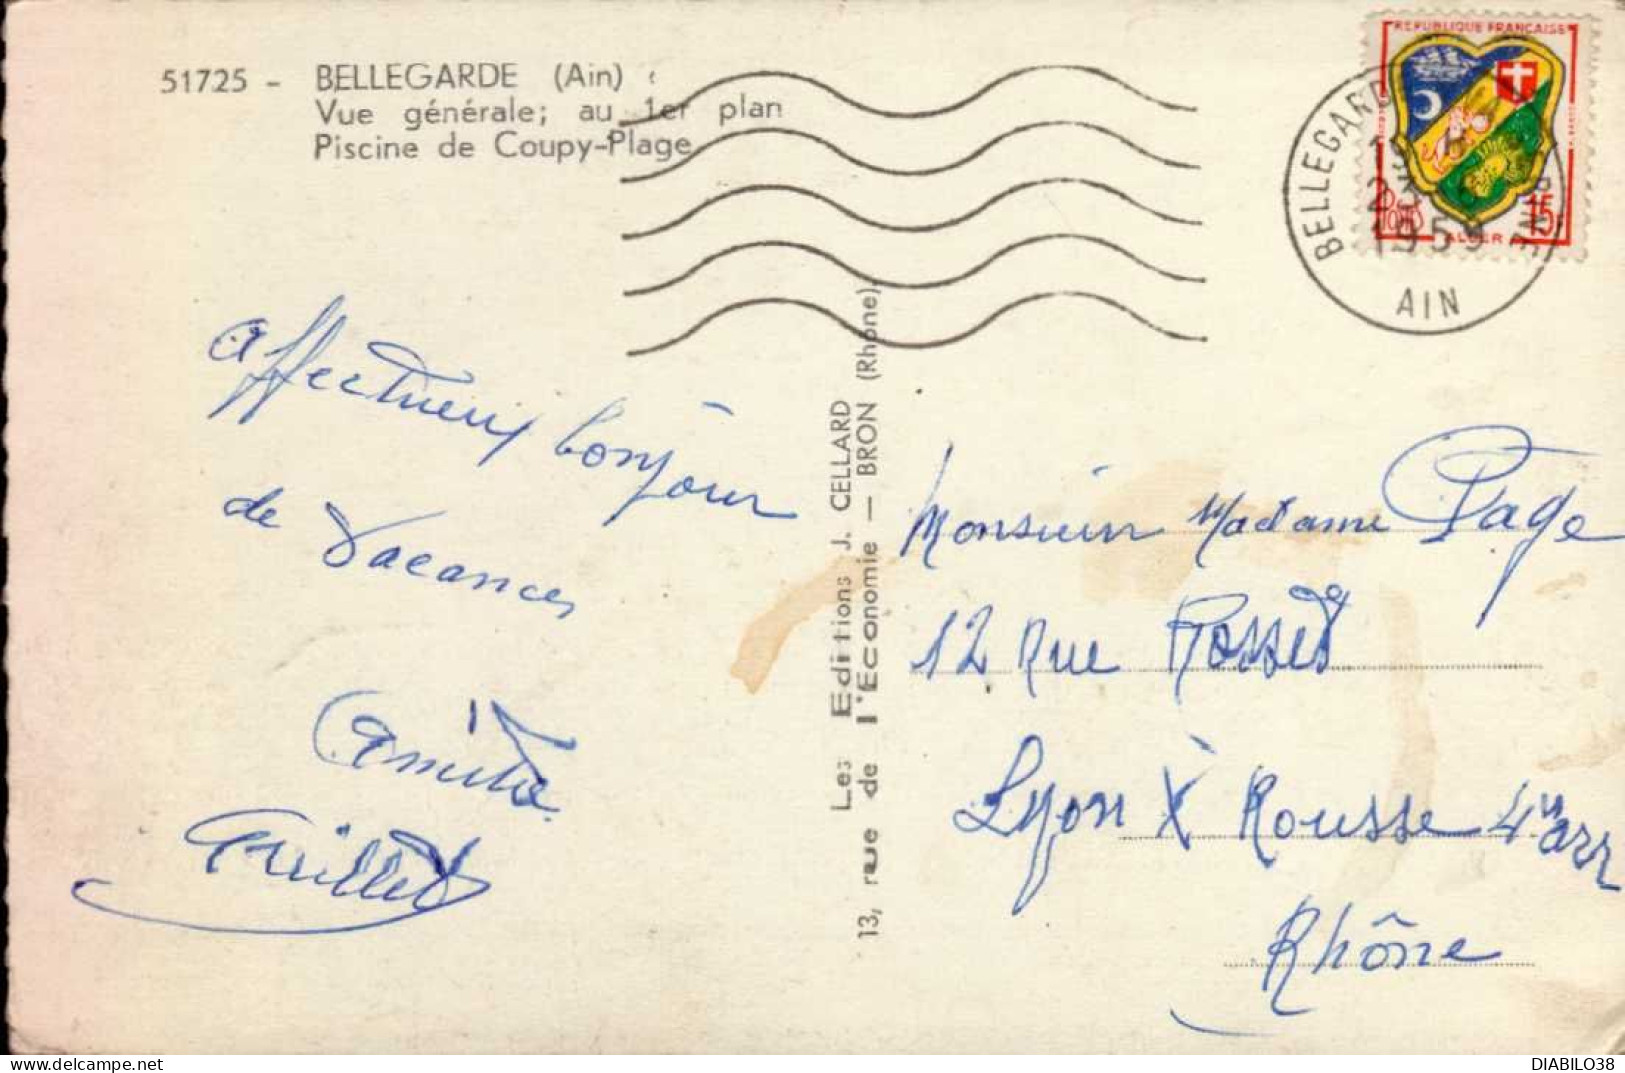 51725 - BELLEGARDE (Ain)
Vue générale; au 1er plan
Piscine de Coupy-Plage
REPUBLIQUE FRANÇAISE
15
ALGER
BELLEGARDE
19 H
23
1959
AIN
Affectueux bonjour
de Vacances
Amitié
Guillet
Les Editions J. CELLARD
13, rue de l'Economie — BRON (Rhône)
Monsieur Madame Page
12 Rue Rosset
Lyon X Rousse 4e arr
Rhône
DIABILO38